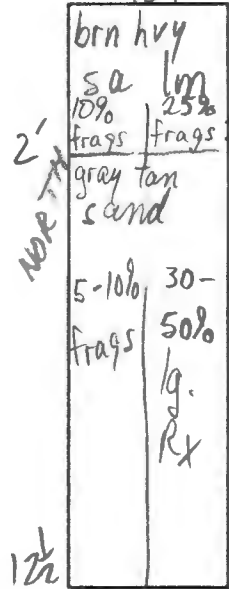 brn hvy
sa lm
10% 25%
frags frags
2'
NORTH
gray tan
sand
5-10% 30-
frags 50%
lg.
Rx
12½